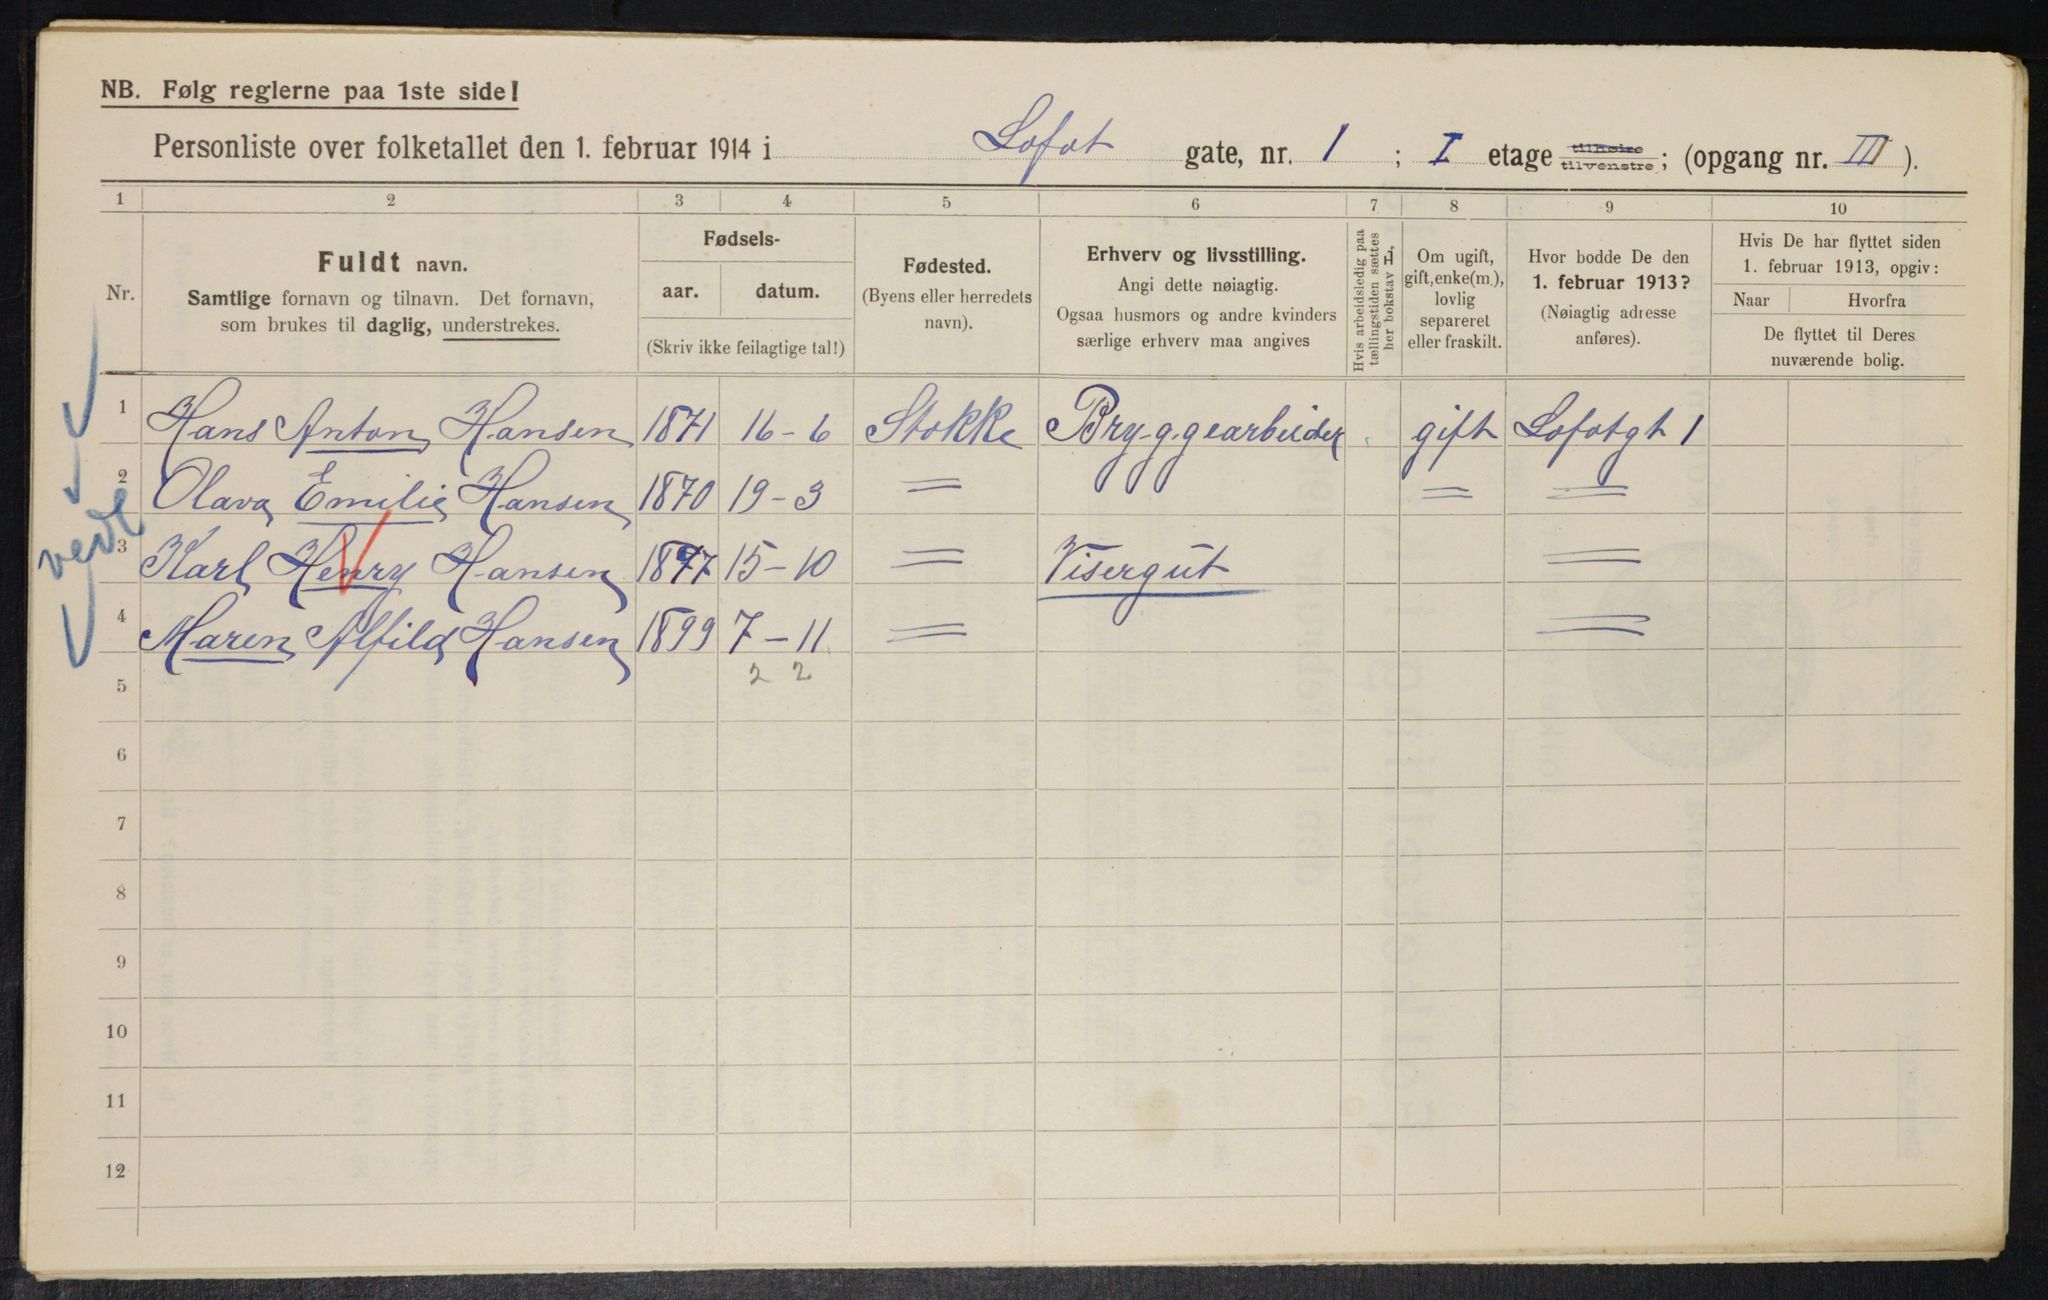 NB. Følg reglerne paa 1ste side!
Personliste over folketallet den 1. februar 1914 i Lofot gate, nr. 1 ; I etage tilhøire tilvenstre; (opgang nr. III ).
1 2 3 4 5 6 7 8 9 10
Nr.
Fuldt navn.
Samtlige fornavn og tilnavn. Det fornavn,
som brukes til daglig, understrekes.
Fødsels-
aar. datum.
(Skriv ikke feilagtige tal!)
Fødested.
(Byens eller herredets
navn).
Erhverv og livsstilling.
Angi dette nøiagtig.
Ogsaa husmors og andre kvinders
særlige erhverv maa angives
Hvis arbeidsledig paa
tællingstiden sættes
her bokstav L,
Om ugift,
gift, enke(m.),
lovlig
separeret
eller fraskilt.
Hvor bodde De den
1. februar 1913?
(Nøiagtig adresse
anføres).
Hvis De har flyttet siden
1. februar 1913, opgiv:
Naar Hvorfra
De flyttet til Deres
nuværende bolig.
1 Hans Anton Hansen 1871 16-6 Stokke Bryggearbeider gift Lofotgt 1
2 Olava Emilie Hansen 1870 19-3 = = =
3 Karl Henry Hansen 1897 15-10 = Visergut =
4 Maren Alfild Hansen 1899 7-11 = =
2 2
5
6
7
8
9
10
11
12